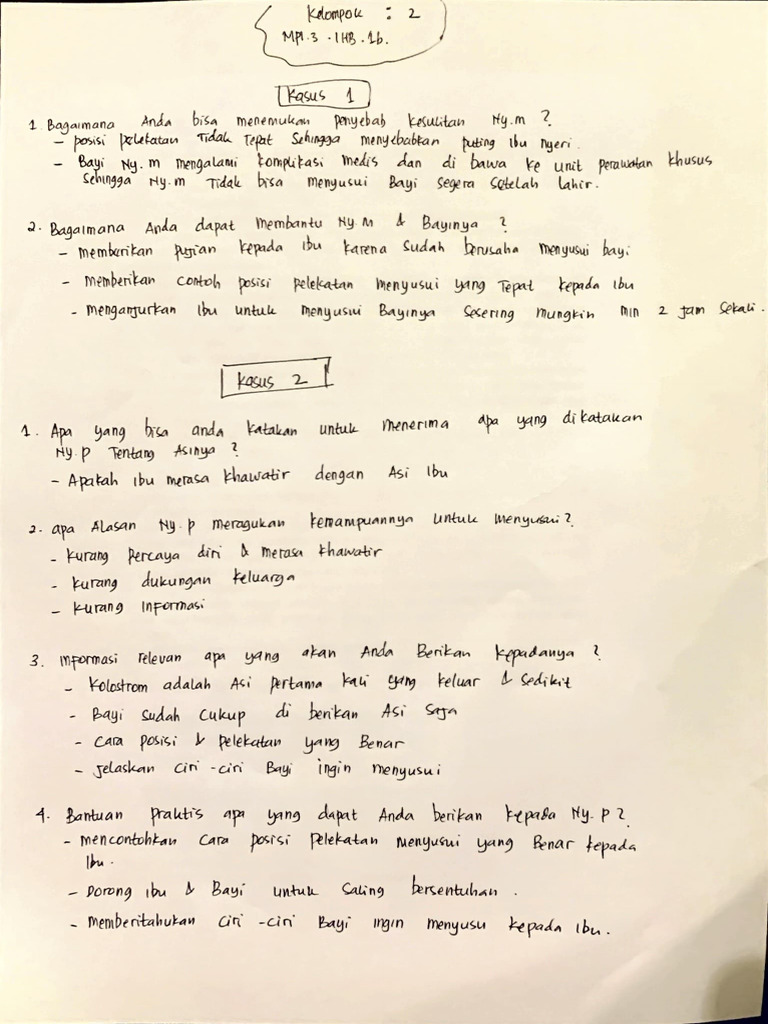 Kelompok : 2
MPI.3 . IHB . 1b.
Kasus 1
1. Bagaimana Anda bisa menemukan penyebab kesulitan Ny.m ?
- posisi pelekatan Tidak Tepat Sehingga menyebabkan puting Ibu nyeri.
- Bayi Ny.m mengalami komplikasi medis dan di bawa ke unit perawatan khusus
Sehingga Ny.m Tidak bisa menyusui Bayi segera setelah lahir.
2. Bagaimana Anda dapat membantu Ny.M & Bayinya ?
- memberikan pujian kepada ibu karena sudah berusaha menyusui bayi
- memberikan contoh posisi pelekatan menyusui yang Tepat kepada Ibu
- menganjurkan Ibu untuk menyusui Bayinya sesering mungkin min 2 jam sekali.
Kasus 2
1. Apa yang bisa anda katakan untuk menerima apa yang dikatakan
Ny.p Tentang Asinya ?
- Apakah Ibu merasa khawatir dengan Asi Ibu
2. apa Alasan Ny.p meragukan kemampuannya untuk menyusui?
- kurang percaya diri & merasa khawatir
- kurang dukungan keluarga
- kurang Informasi
3. Informasi relevan apa yang akan Anda Berikan kepadanya ?
- Kolostrom adalah Asi pertama kali yang keluar & sedikit
- Bayi sudah cukup di berikan Asi saja
- cara posisi & pelekatan yang Benar
- Jelaskan ciri-ciri Bayi ingin menyusui
4. Bantuan praktis apa yang dapat Anda berikan kepada Ny.p?
- mencontohkan cara posisi pelekatan menyusui yang Benar kepada
Ibu.
- Dorong Ibu & Bayi untuk saling bersentuhan.
- memberitahukan ciri-ciri Bayi ingin menyusu kepada Ibu.